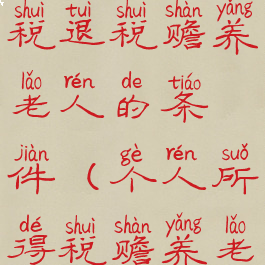 shuì tuì shuì shàn yǎng
税退税赡养
lǎo rén de tiáo
老人的条
jiàn gè rén suǒ
件（个人所
dé shuì shàn yǎng lǎo
得税赡养老